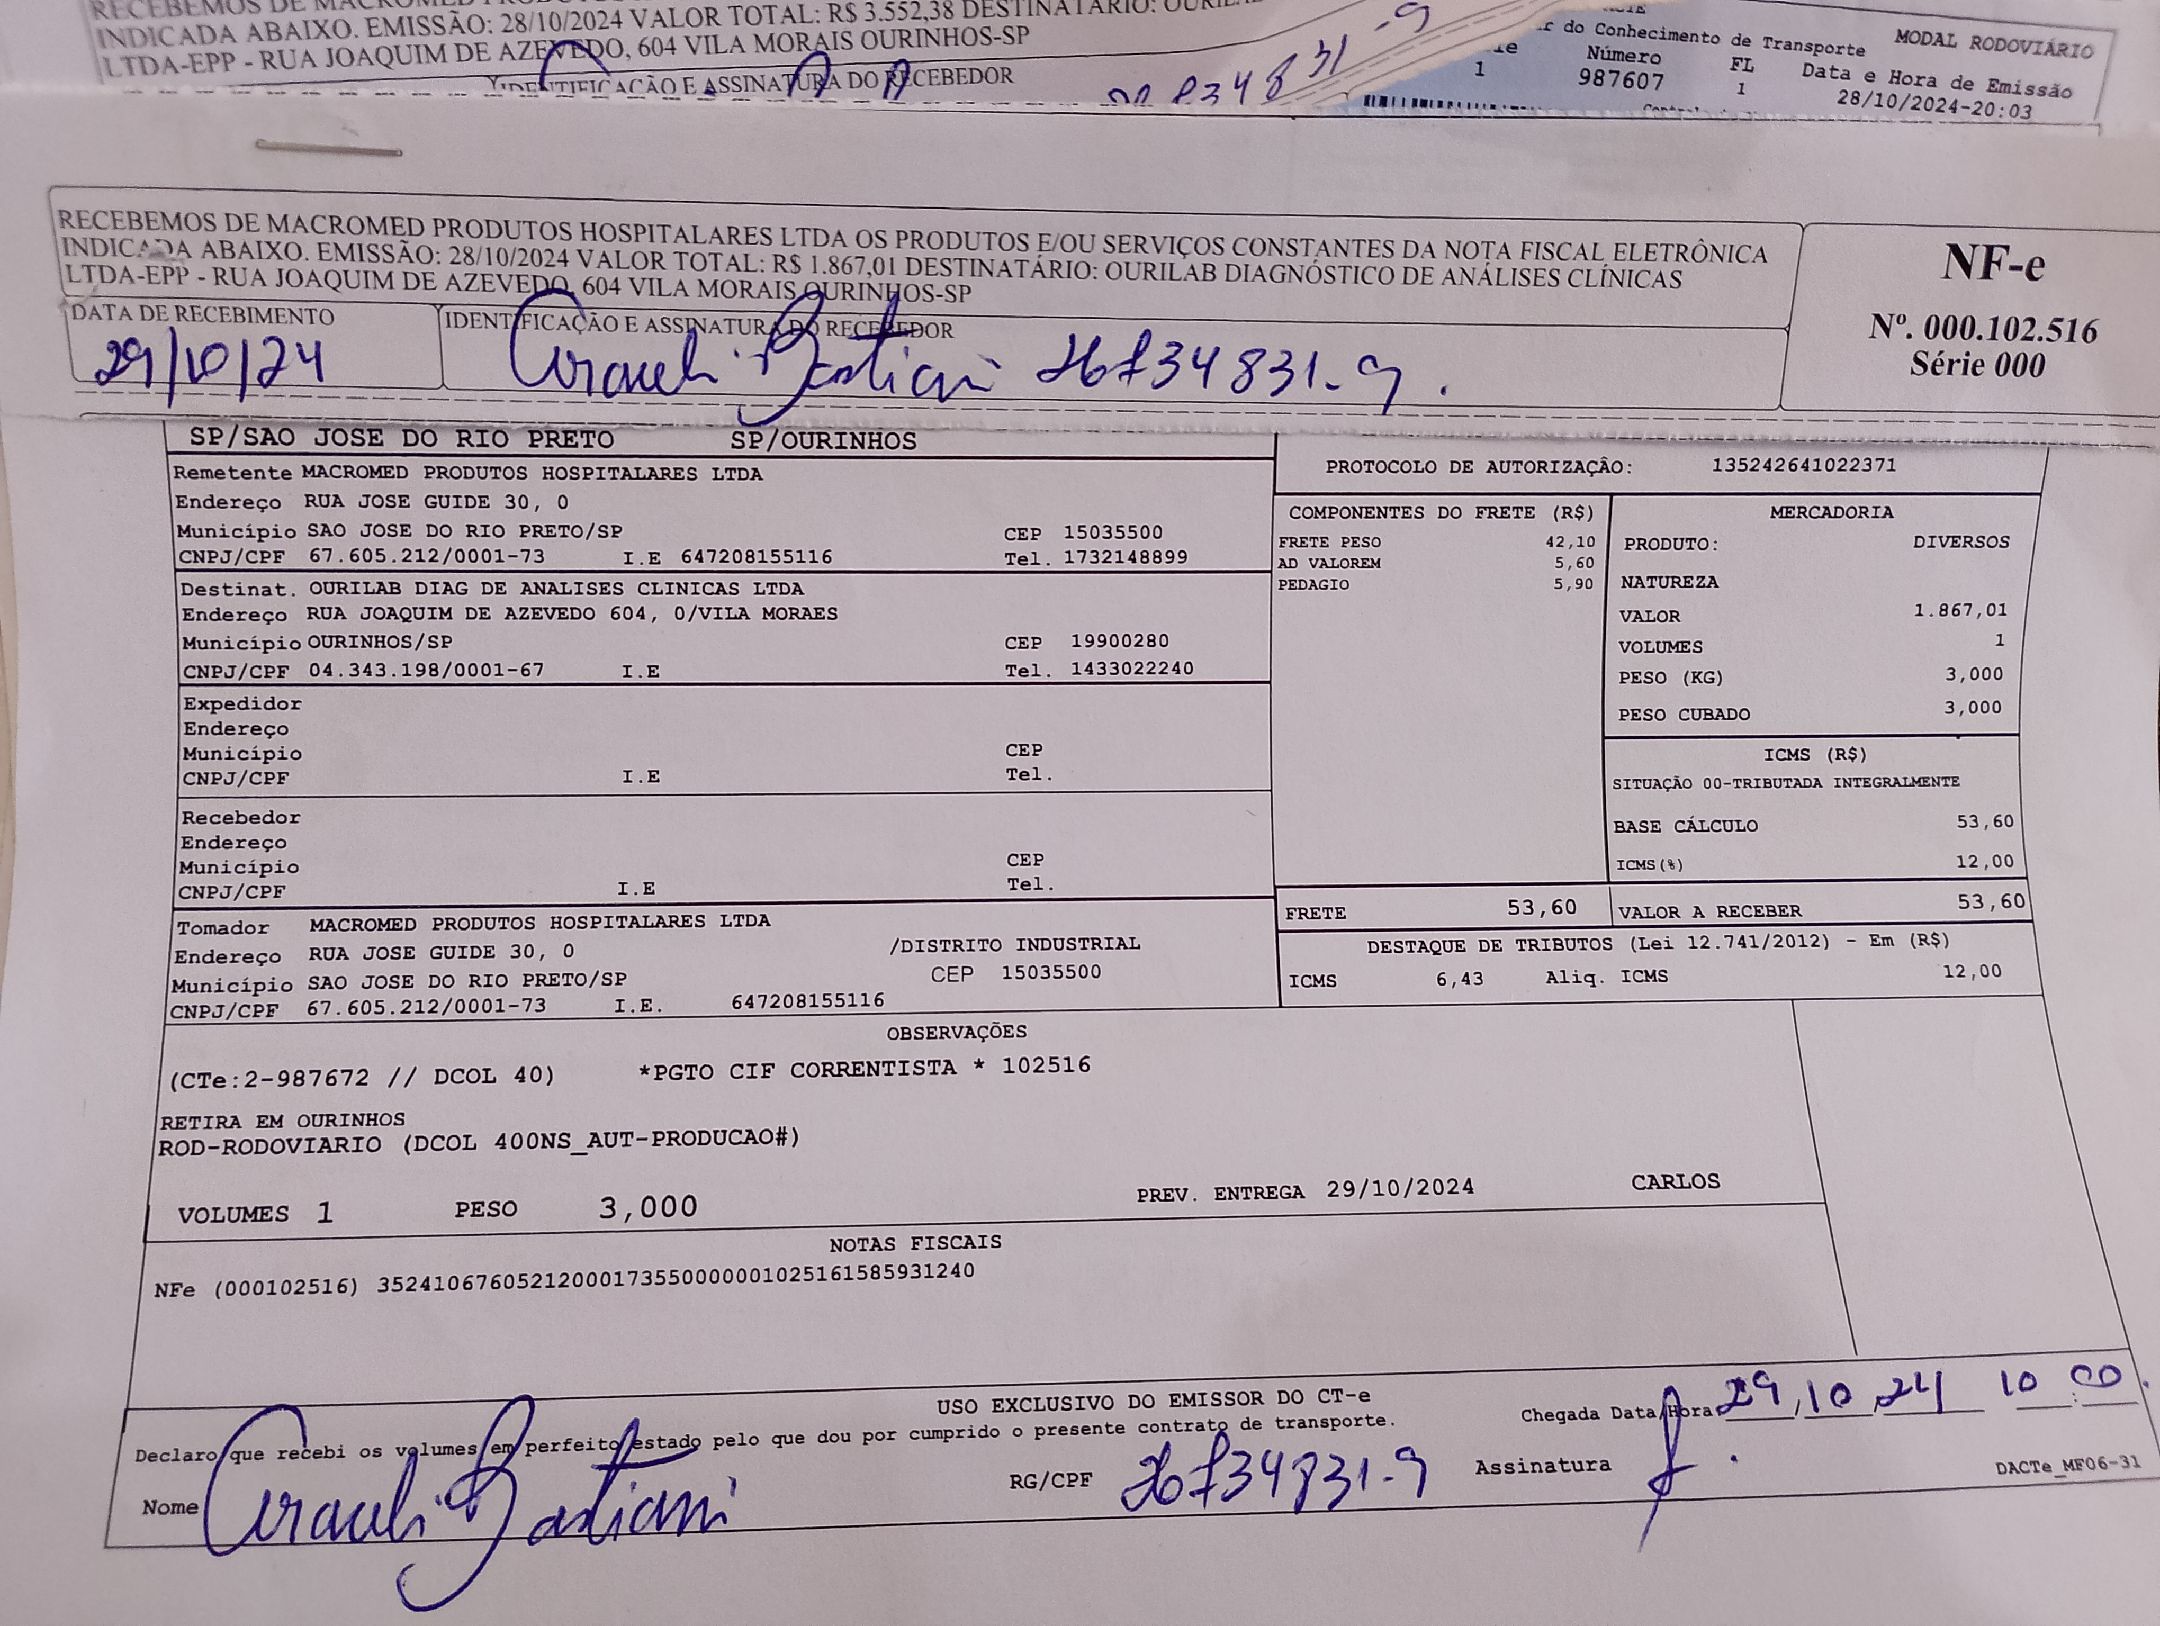 RECEBEMOS DE MACROMED
INDICADA ABAIXO. EMISSÃO: 28/10/2024 VALOR TOTAL: R$ 3.552,38 DESTINATÁRIO:
LTDA-EPP - RUA JOAQUIM DE AZEVEDO, 604 VILA MORAIS OURINHOS-SP
IDENTIFICAÇÃO E ASSINATURA DO RECEBEDOR
34831-9
do Conhecimento de Transporte MODAL RODOVIÁRIO
Número FL Data e Hora de Emissão
1 987607 1 28/10/2024-20:03
RECEBEMOS DE MACROMED PRODUTOS HOSPITALARES LTDA OS PRODUTOS E/OU SERVIÇOS CONSTANTES DA NOTA FISCAL ELETRÔNICA
INDICADA ABAIXO. EMISSÃO: 28/10/2024 VALOR TOTAL: R$ 1.867,01 DESTINATÁRIO: OURILAB DIAGNÓSTICO DE ANÁLISES CLÍNICAS
LTDA-EPP - RUA JOAQUIM DE AZEVEDO, 604 VILA MORAIS OURINHOS-SP
NF-e
Nº. 000.102.516
Série 000
DATA DE RECEBIMENTO IDENTIFICAÇÃO E ASSINATURA DO RECEBEDOR
29/10/24 Bastiani 26734831-9.
SP/SAO JOSE DO RIO PRETO SP/OURINHOS
PROTOCOLO DE AUTORIZAÇÃO: 135242641022371
Remetente MACROMED PRODUTOS HOSPITALARES LTDA
Endereço RUA JOSE GUIDE 30, 0
Município SAO JOSE DO RIO PRETO/SP CEP 15035500
CNPJ/CPF 67.605.212/0001-73 I.E 647208155116 Tel. 1732148899
Destinat. OURILAB DIAG DE ANALISES CLINICAS LTDA
Endereço RUA JOAQUIM DE AZEVEDO 604, 0/VILA MORAES
Município OURINHOS/SP CEP 19900280
CNPJ/CPF 04.343.198/0001-67 I.E Tel. 1433022240
Expedidor
Endereço
Município CEP
CNPJ/CPF I.E Tel.
Recebedor
Endereço
Município CEP
CNPJ/CPF I.E Tel.
Tomador MACROMED PRODUTOS HOSPITALARES LTDA
Endereço RUA JOSE GUIDE 30, 0 /DISTRITO INDUSTRIAL
Município SAO JOSE DO RIO PRETO/SP CEP 15035500
CNPJ/CPF 67.605.212/0001-73 I.E. 647208155116
COMPONENTES DO FRETE (R$)
FRETE PESO 42,10
AD VALOREM 5,60
PEDAGIO 5,90
MERCADORIA
PRODUTO: DIVERSOS
NATUREZA
VALOR 1.867,01
VOLUMES 1
PESO (KG) 3,000
PESO CUBADO 3,000
ICMS (R$)
SITUAÇÃO 00-TRIBUTADA INTEGRALMENTE
BASE CÁLCULO 53,60
ICMS(%) 12,00
FRETE 53,60 VALOR A RECEBER 53,60
DESTAQUE DE TRIBUTOS (Lei 12.741/2012) - Em (R$)
ICMS 6,43 Aliq. ICMS 12,00
OBSERVAÇÕES
(CTe:2-987672 // DCOL 40) *PGTO CIF CORRENTISTA * 102516
RETIRA EM OURINHOS
ROD-RODOVIARIO (DCOL 400NS_AUT-PRODUCAO#)
VOLUMES 1 PESO 3,000 PREV. ENTREGA 29/10/2024 CARLOS
NOTAS FISCAIS
NFe (000102516) 35241067605212000173550000001025161585931240
USO EXCLUSIVO DO EMISSOR DO CT-e
Declaro que recebi os volumes em perfeito estado pelo que dou por cumprido o presente contrato de transporte.
Chegada Data/Hora 29,10,24 10:00
Nome Bastiani RG/CPF 26734831-9 Assinatura
DACTe_MF06-31